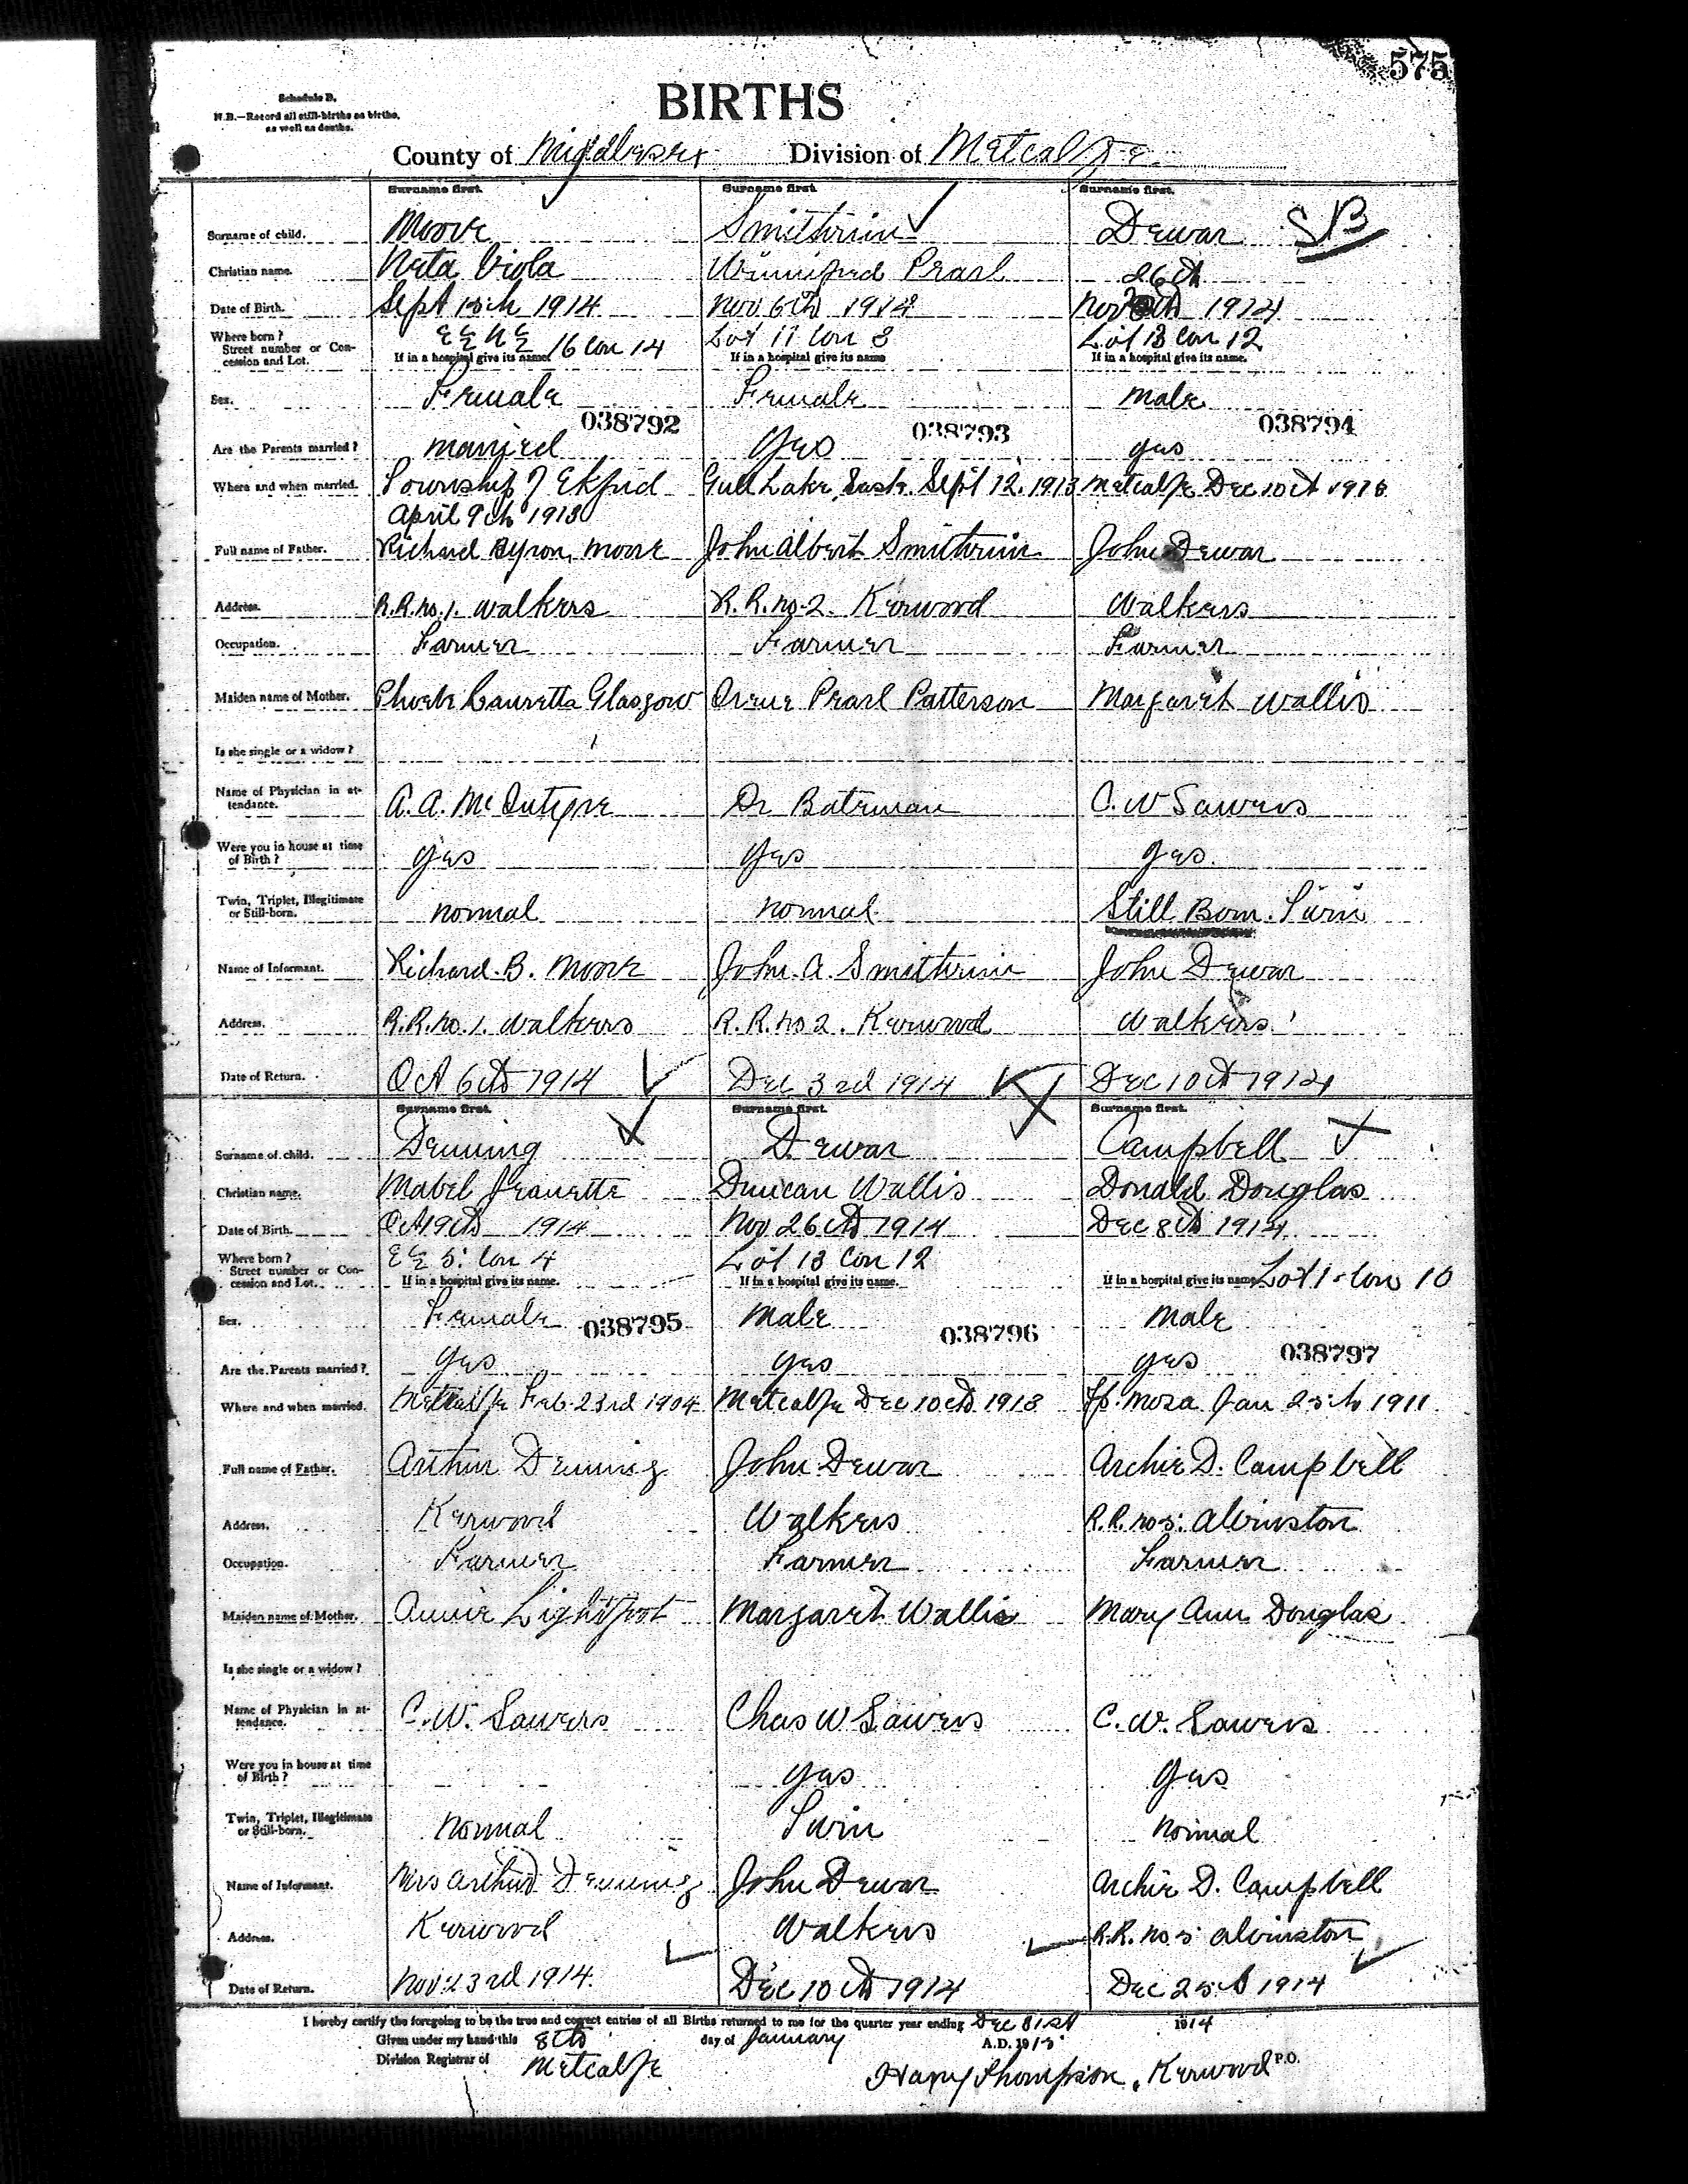 575
BIRTHS
Schedule B.
N.B.—Record all still-births as births,
as well as deaths.
County of Middlesex Division of Metcalfe
Surname first. Surname first. Surname first.
Surname of child. Moore Smithrim Dewar SB
Christian name. Neta Viola Winnifred Pearl 26th
Date of Birth. Sept 15th 1914 Nov 6th 1914 Nov 1914
Where born? E ½ N ½ 16 Con 14 Lot 11 Con 8 Lot 13 Con 12
Street number or Con-
cession and Lot. If in a hospital give its name. If in a hospital give its name If in a hospital give its name.
Sex. Female Female Male
038792 038793 038794
Are the Parents married? married yes yes
Where and when married. Township of Ekfrid Gull Lake, Sask. Sept 12. 1913 Metcalfe Dec 10th 1913
April 9th 1913
Full name of Father. Richard Byron Moore John Albert Smithrim John Dewar
Address. R.R. no. 1. Walkers R.R. no. 2. Kerwood Walkers
Occupation. Farmer Farmer Farmer
Maiden name of Mother. Phoebe Lauretta Glasgow Irene Pearl Patterson Margaret Wallis
Is she single or a widow?
Name of Physician in at-
tendance. A. A. McIntyre Dr Bateman C. W Sawers
Were you in house at time
of Birth? yes yes yes.
Twin, Triplet, Illegitimate
or Still-born. normal normal. Still Born. Twin
Name of Informant. Richard. B. Moore John. A. Smithrim John Dewar
Address. R.R. no. 1. Walkers R.R. no 2. Kerwood Walkers
Date of Return. Oct 6th 1914 Dec 3rd 1914 Dec 10th 1914
Surname first. Surname first. Surname first.
Surname of child. Denning Dewar Campbell
Christian name. Mabel Jeanette Duncan Wallis Donald Douglas
Date of Birth. Oct 19th 1914 Nov 26th 1914 Dec 8th 1914
Where born? E ½ 5 Con 4 Lot 13 Con 12
Street number or Con-
cession and Lot. If in a hospital give its name. If in a hospital give its name. If in a hospital give its name Lot 1 Con 10
Sex. Female Male Male
038795 038796 038797
Are the Parents married? yes yes yes
Where and when married. Metcalfe Feb. 23rd 1904 Metcalfe Dec 10th 1913 Tp. Mosa Jan 25th 1911
Full name of Father. Arthur Denning John Dewar Archie D. Campbell
Address. Kerwood Walkers R.R. no 5. Alvinston
Occupation. Farmer Farmer Farmer
Maiden name of Mother. Annie Lightfoot Margaret Wallis Mary Ann Douglas
Is she single or a widow?
Name of Physician in at-
tendance. C. W. Sawers Chas W Sawers C. W. Sawers
Were you in house at time
of Birth? yes yes
Twin, Triplet, Illegitimate
or Still-born. Normal Twin Normal
Name of Informant. Mrs Arthur Denning John Dewar Archie D. Campbell
Address. Kerwood Walkers R.R. no 5 Alvinston
Date of Return. Nov 23rd 1914. Dec 10th 1914 Dec 25th 1914
I hereby certify the foregoing to be the true and correct entries of all Births returned to me for the quarter year ending Dec 31st 1914
Given under my hand this 8th day of January A.D. 1915
Division Registrar of Metcalfe Harry Thompson, Kerwood P.O.